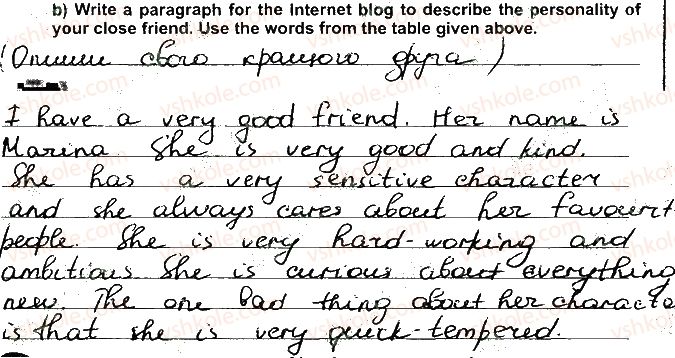 b) Write a paragraph for the Internet blog to describe the personality of
your close friend. Use the words from the table given above.
(Опиши свого кращого друга)
I have a very good friend. Her name is
Marina. She is very good and kind.
She has a very sensitive character
and she always cares about her favourit
people. She is very hard-working and
ambitious. She is curious about everything
new. The one bad thing about her characte
is that she is very quick-tempered.